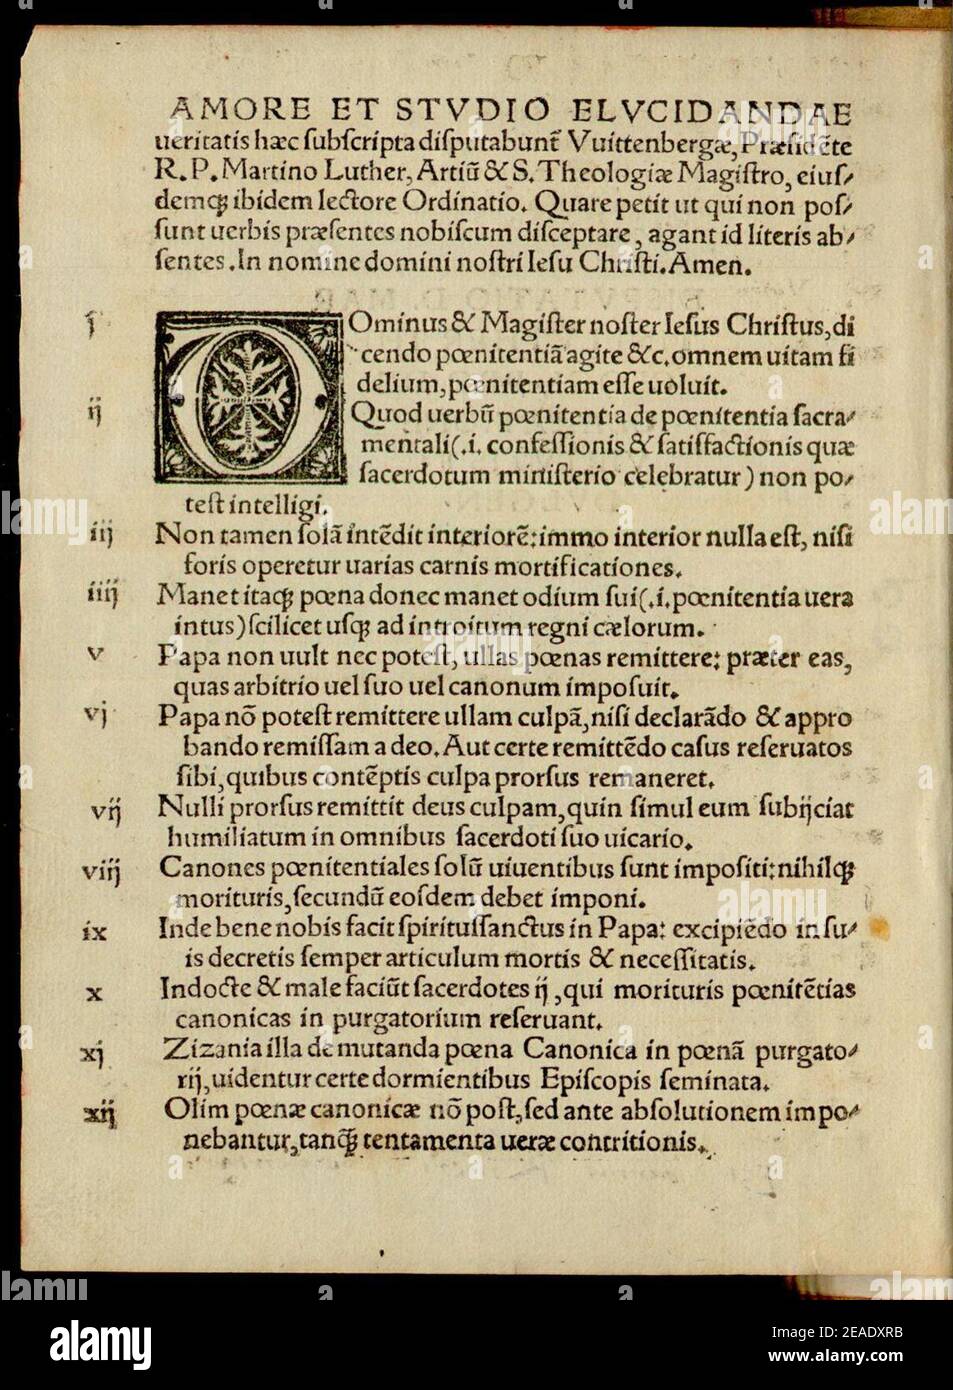 AMORE ET STVDIO ELVCIDANDAE
ueritatis hæc ſubſcripta diſputabunt᷑ Vuittenbergæ, Præſidēte
R.P. Martino Luther, Artiū & S. Theologiæ Magiſtro, eiuſ⸗
demq; ibidem lectore Ordinatio. Quare petit ut qui non poſ⸗
ſunt uerbis præſentes nobiſcum diſceptare, agant id literis ab⸗
ſentes. In nomine domini noſtri Ieſu Chriſti. Amen.
j DOminus & Magiſter noſter Ieſus Chriſtus, di
cendo pœnitentiā agite &c. omnem uitam fi
delium, pœnitentiam eſſe uoluit.
ij Quod uerbū pœnitentia de pœnitentia ſacra⸗
mentali (.i. confeſſionis & ſatiſfactionis quæ
ſacerdotum miniſterio celebratur) non po⸗
teſt intelligi.
iij Non tamen ſolā intēdit interiorē: immo interior nulla eſt, niſi
foris operetur uarias carnis mortificationes.
iiij Manet itaq; pœna donec manet odium ſui (.i. pœnitentia uera
intus) ſcilicet uſq; ad introitum regni cælorum.
v Papa non uult nec poteſt, ullas pœnas remittere: præter eas,
quas arbitrio uel ſuo uel canonum impoſuit.
vj Papa nō poteſt remittere ullam culpā, niſi declarādo & appro
bando remiſſam a deo. Aut certe remittēdo caſus reſeruatos
ſibi, quibus contēptis culpa prorſus remaneret.
vij Nulli prorſus remittit deus culpam, quin ſimul eum ſubijciat
humiliatum in omnibus ſacerdoti ſuo uicario.
viij Canones pœnitentiales ſolū uiuentibus ſunt impoſiti: nihilq;
morituris, ſecundū eoſdem debet imponi.
ix Inde bene nobis facit ſpirituſſanctus in Papa: excipiēdo in ſu⸗
is decretis ſemper articulum mortis & neceſſitatis.
x Indocte & male faciūt ſacerdotes ij, qui morituris pœnitētias
canonicas in purgatorium reſeruant.
xj Zizania illa de mutanda pœna Canonica in pœnā purgato⸗
rij, uidentur certe dormientibus Epiſcopis ſeminata.
xij Olim pœnæ canonicæ nō poſt, ſed ante abſolutionem impo⸗
nebantur, tanq; tentamenta ueræ contritionis.
alamy
Image ID: 2EADXRB
www.alamy.com